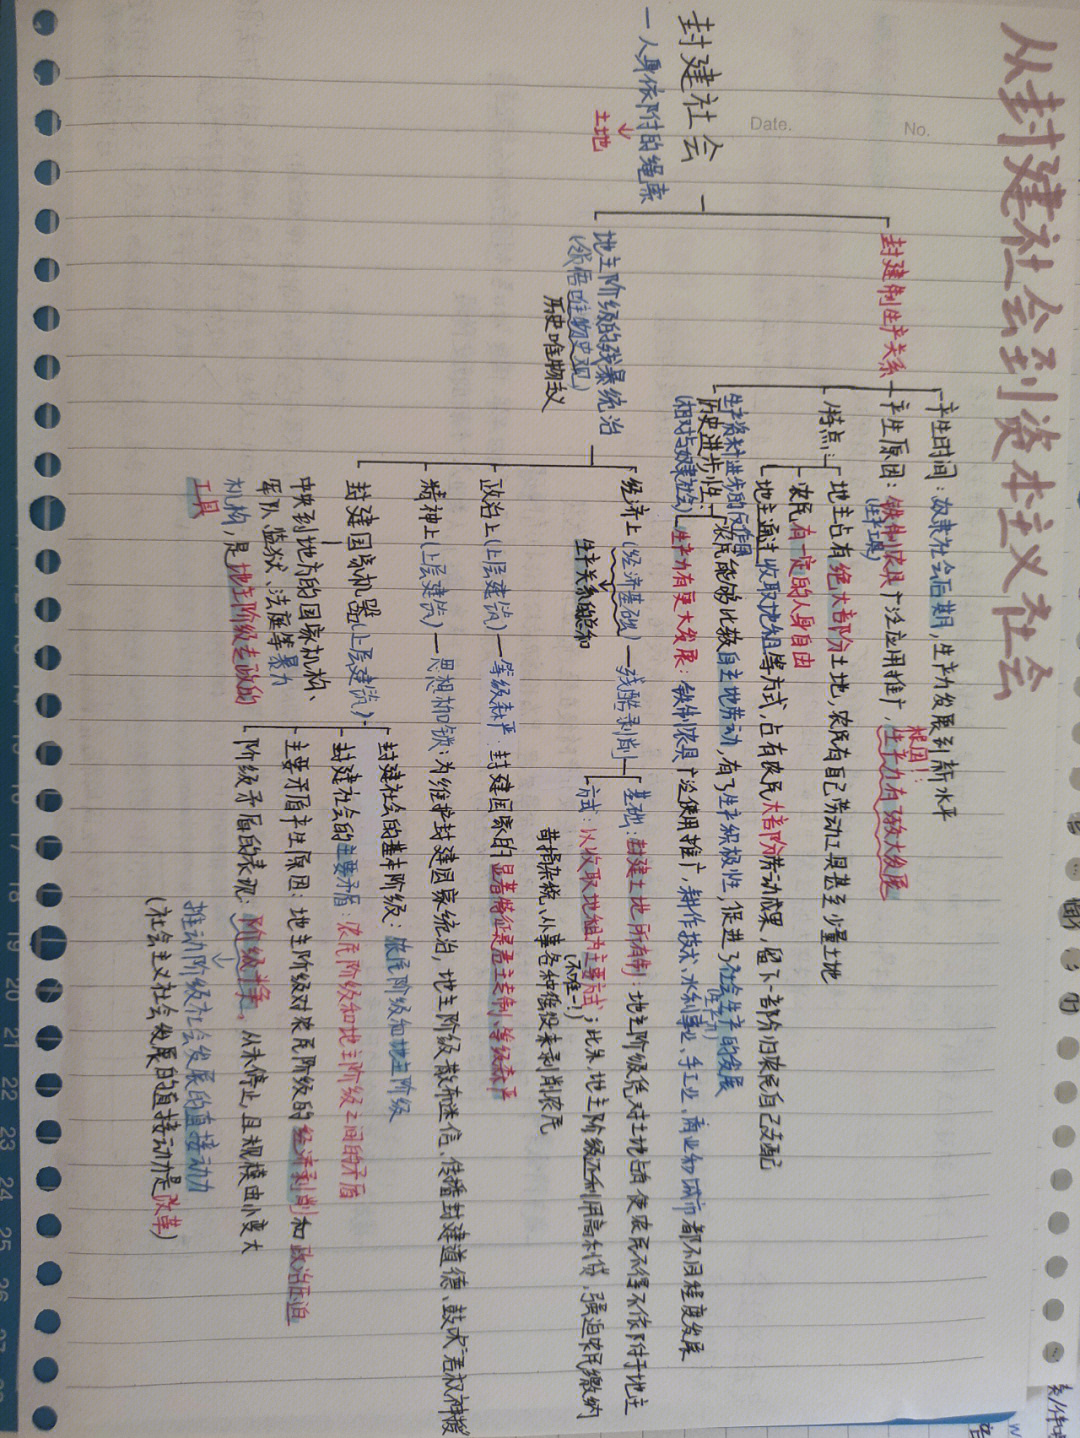 从封建社会到资本主义社会
No.
Date.
封建社会
一人身依附的绳索
土地
封建制生产关系
产生时间：奴隶社会后期，生产力发展到新水平
产生原因：铁制农具广泛应用推广，生产力有了较大发展
(生产工具)
根因!
特点：
地主占有绝大部分土地，农民有自己劳动工具甚至少量土地
农民有一定的人身自由
地主通过收取地租等方式，占有农民大部分劳动成果，留下一部分归农民自己支配
历史进步性：
(相对与奴隶社会)
农民能够比较自主地劳动，有了生产积极性，促进了社会生产的发展
生产力有更大发展：铁制农具广泛使用推广，耕作技术、水利事业、手工业、商业和城市都不同程度发展
地主阶级的残暴统治
(领悟唯物史观)
历史唯物主义
经济上(经济基础)—残酷剥削
生产关系的总和
基础：封建土地所有制：地主阶级绝对土地占有使农民不得不依附于地主
方式：以收取地租为主要方式；此外，地主阶级还利用高利贷，强迫农民缴纳
(不唯一!)
苛捐杂税、从事各种徭役来剥削农民
政治上(上层建筑)—等级森严：封建国家的显著特征是君主专制、等级森严
精神上(上层建筑)—思想枷锁：为维护封建国家统治，地主阶级散布迷信、传播封建道德、鼓吹君权神授
封建国家机器(上层建筑)
中央到地方的国家机构、
军队、监狱、法庭等暴力
机构，是地主阶级专政的
工具
封建社会的基本阶级：农民阶级和地主阶级
封建社会的主要矛盾：农民阶级和地主阶级之间的矛盾
主要矛盾产生原因：地主阶级对农民阶级的经济剥削和政治压迫
阶级矛盾的表现：阶级斗争，从未停止，且规模由小变大
推动阶级社会发展的直接动力
(社会主义社会发展的直接动力是改革)
18
19
20
21
22
23
24
25
26